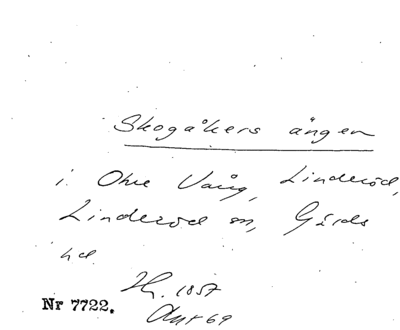 Skogåkers ängen
i Ohre Vång, Linderöd,
Linderöd sn, Gärds
hd.
Hg. 1857
Akt 69
Nr 7722.